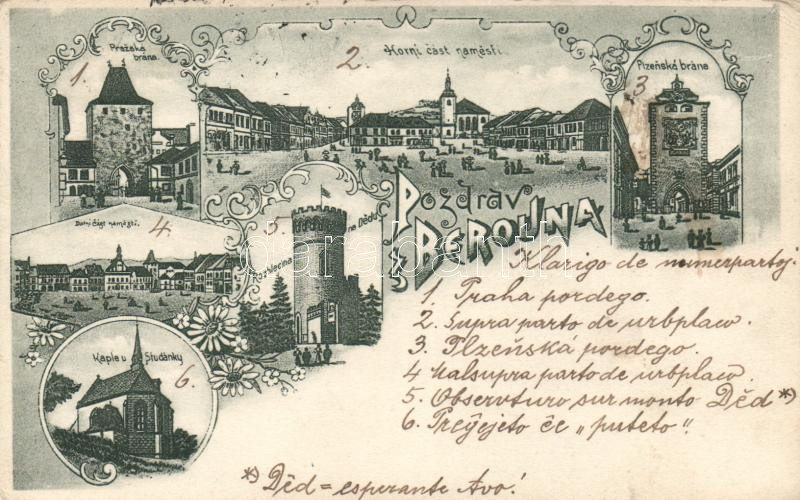 Pražská
brána.
1.
2.
Horní část naměstí.
Plzeňská brána
3
Dolní část naměstí.
4.
5.
Rozhledna
na Dědu
Pozdrav
z BEROUNA
Kaple u Studánky
6.
Klarigo de numerpartoj.
1. Praha pordego.
2. Supra parto de urbplaco.
3. Plzeňská pordego.
4 Malsupra parto de urbplaco.
5. Observturo sur monto Děd *)
6. Preĝejeto ĉe „puteto".
*) Děd = esperante Avo!
darabanth